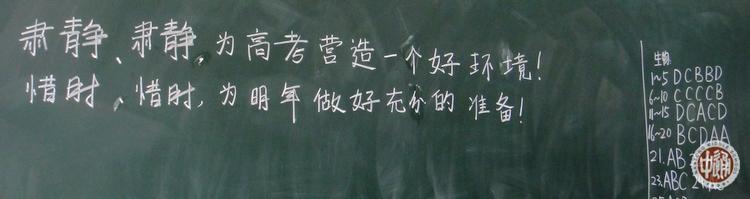 肃静、肃静,为高考营造一个好环境!
惜时、惜时,为明年做好充分的准备!
生物
1~5 DCBBD
6~10 CCCCB
11~15 DCACD
16~20 BCDAA
21. AB
23. ABC